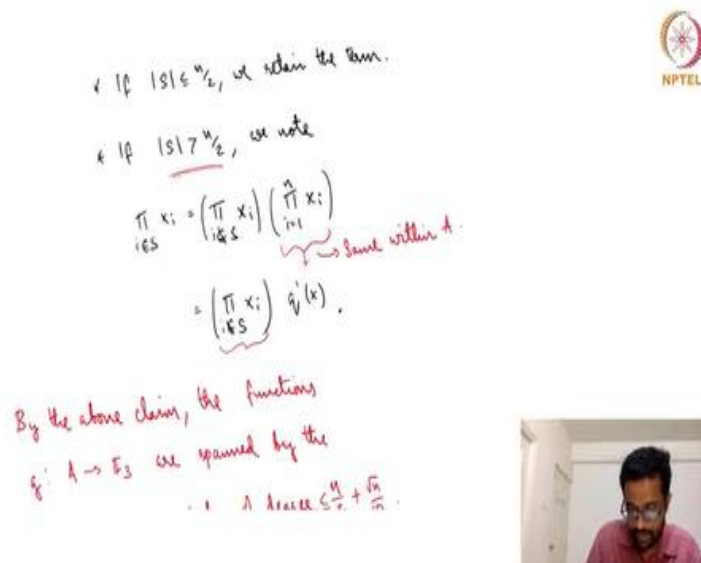 NPTEL
* If |S| ≤ n/2, we retain the term.
* If |S| > n/2, we note
∏_{i∈S} x_i = (∏_{i∉S} x_i) (∏_{i=1}^{n} x_i)
→ Same within A.
= (∏_{i∉S} x_i) q'(x).
By the above claim, the functions
g: A → F_3 are spanned by the
degree ≤ n/2 + √n